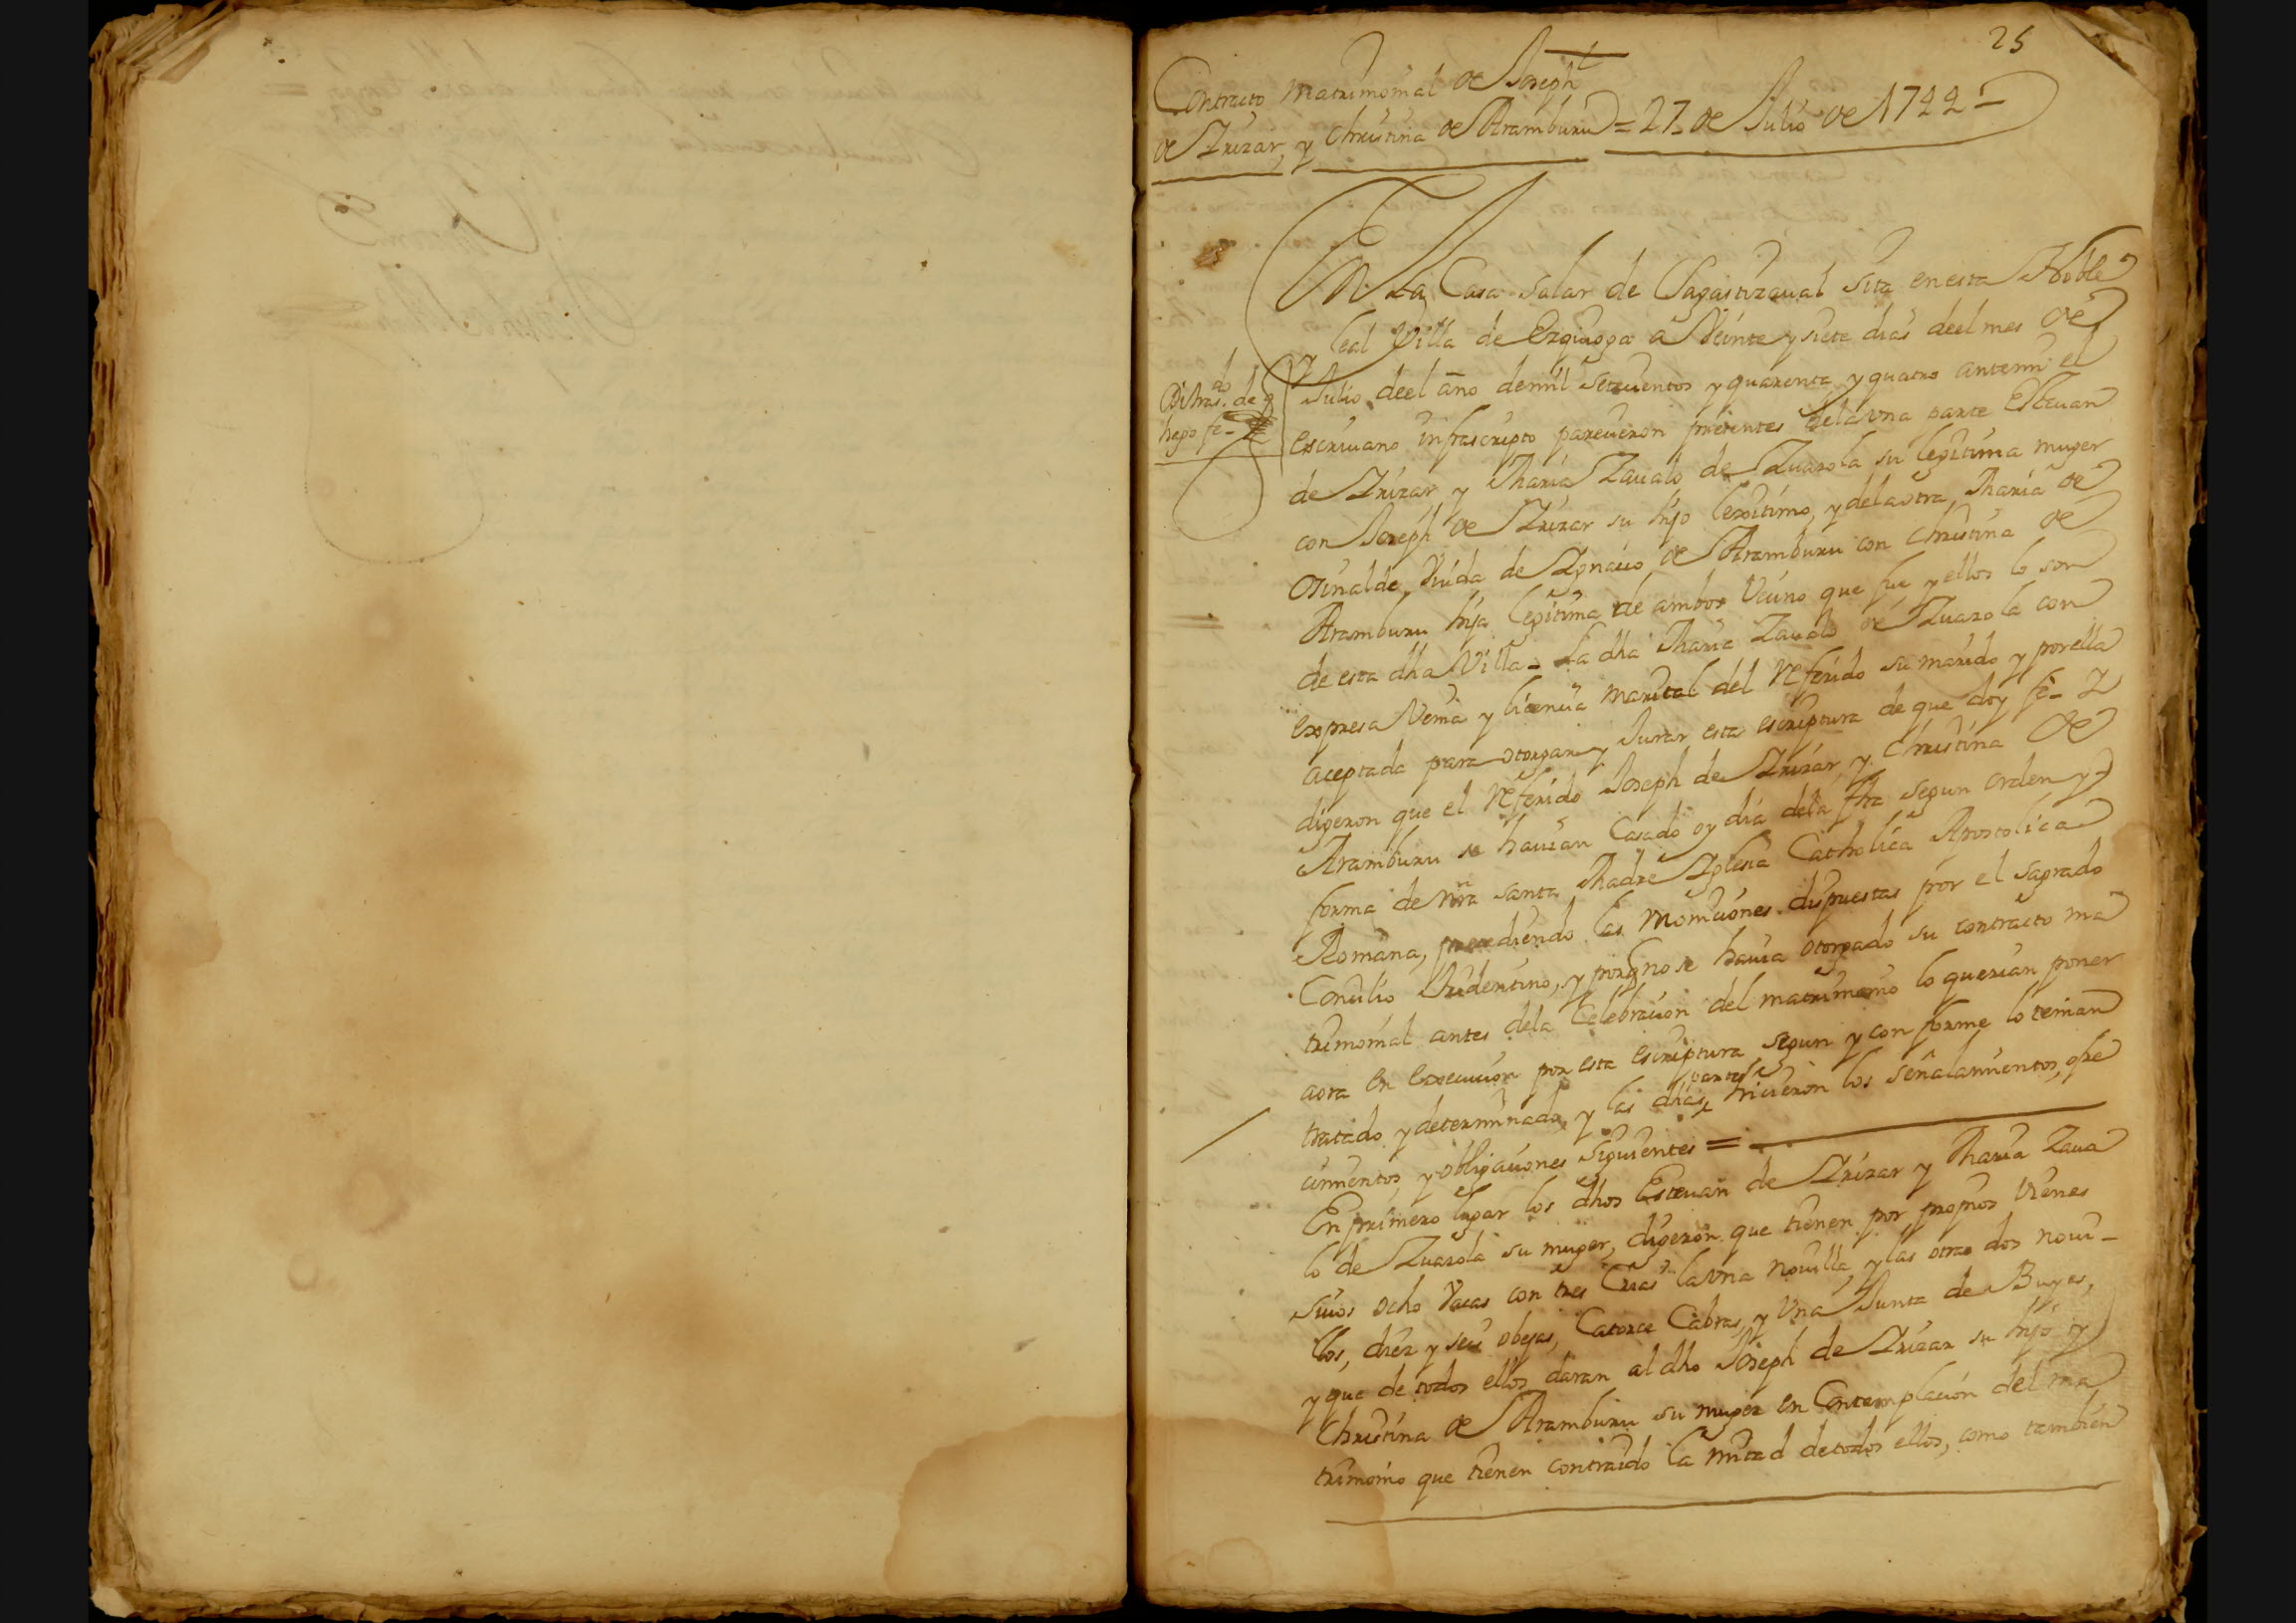 25
Contracto Matrimonial de Joseph
de Yrizar, y Christina de Aramburu = 27 de Julio de 1744 =
En la Casa Solar de Sagastizaual sita en esta Noble
Leal Villa de Ezquioga a Veinte y siete dias deel mes de
Julio deel año de mil Setecientos y quarenta y quatro ante mi el
escriuano infrascripto parecieron presentes dela vna parte Esteuan
de Yrizar y Maria Zaualo de Zuazola su legitima muger
con Joseph de Yrizar su hijo lexitimo, y dela otra, Maria de
Osinalde Viuda de Ygnacio de Aramburu con Christina de
Aramburu hija legitima de ambos Vecino que fue y ellos lo son
de esta dha Villa = La dha Maria Zaualo de Zuazola con
expresa Venia y licencia marital del referido su marido y por ella
aceptada para otorgar y Jurar esta escriptura de que doy fe = Y
digeron que el referido Joseph de Yrizar, y Christina de
Aramburu se hauian Casado oy dia dela fha segun orden y
forma de nra santa Madre Yglesia Catholica Apostolica
Romana, precediendo las Moniciones dispuestas por el sagrado
Concilio Tridentino, y porq no se hauia otorgado su contracto ma
trimonial antes dela Celebracion del matrimonio lo querian poner
aora en execucion por esta escriptura segun y conforme lo tenian
tratado y determinado, y las dhas partes hicieron los señalamientos, ofre
cimientos y obligaciones siguientes =
En primero lugar los dhos Esteuan de Yrizar y Maria Zaua
lo de Zuazola su muger, digeron que tienen por propios vienes
suios ocho Vacas con tres Crias la vna nouilla, y las otras dos noui-
llos, diez y seis obejas, Catorce Cabras, y Vna Junta de Buyes,
y que de todos ellos daran al dho Joseph de Yrizar su hijo y
Christina de Aramburu su muger en Contemplacion del ma
trimonio que tienen contraido la mitad de todos ellos, como tambien